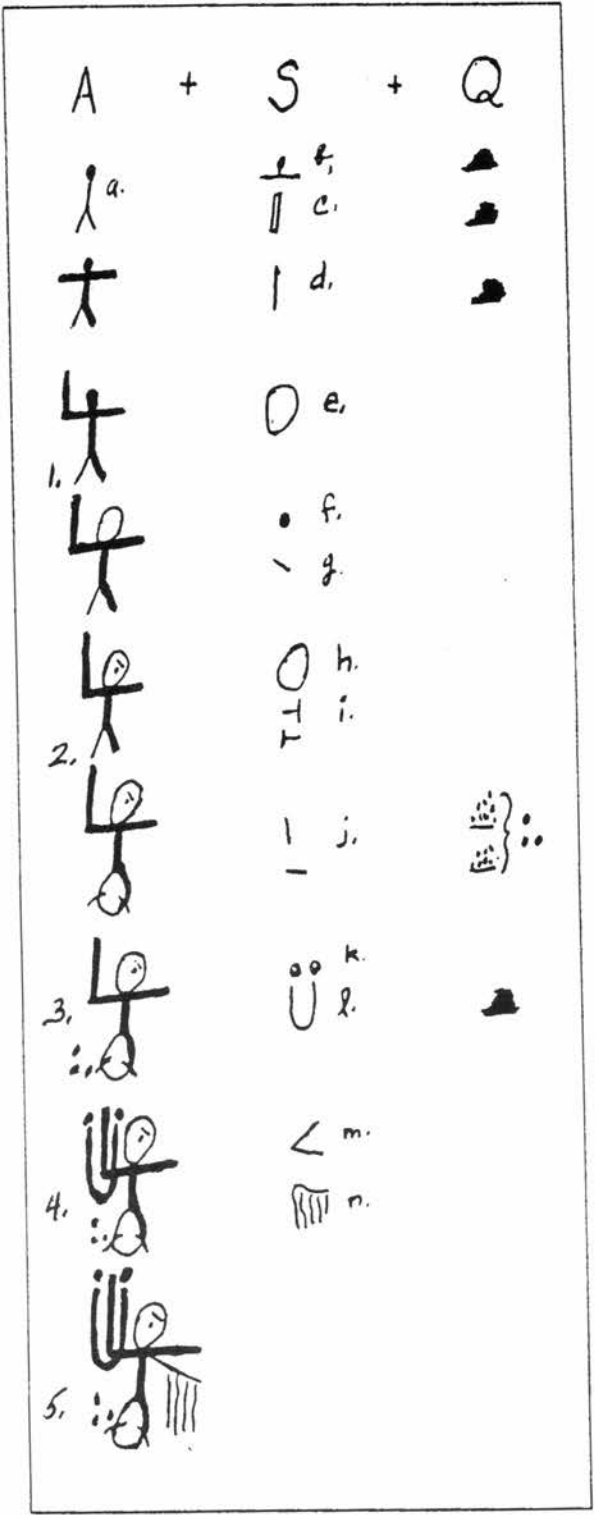 A + S + Q
a.
b,
c.
d.
e,
1.
f.
g.
h.
i.
2.
j.
k.
l.
3.
m.
n.
4.
5.